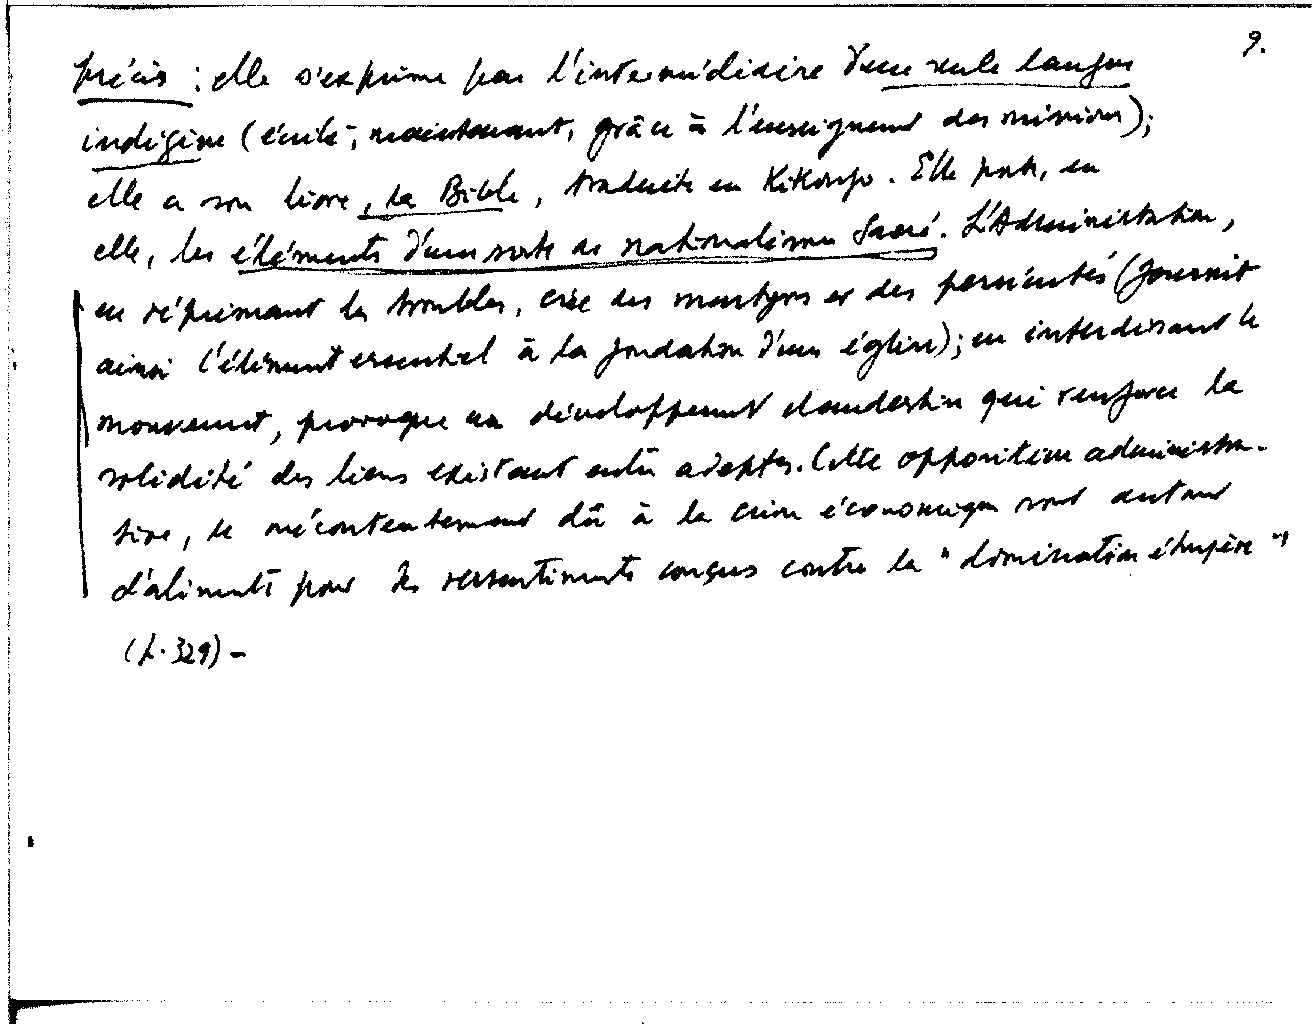 9.
précis : elle s'exprime par l'intermédiaire d'une seule langue
indigène (écrite, maintenant, grâce à l'enseignement des missions);
elle a son livre, la Bible, traduite en Kikongo. Elle porte, en
elle, les éléments d'une sorte de nationalisme sacré. L'Administration,
en réprimant les troubles, crée des martyrs et des persécutés (fournit
ainsi l'élément essentiel à la fondation d'une église); en interdisant le
mouvement, provoque un développement clandestin qui renforce la
solidité des liens existant entre adeptes. Cette opposition administra-
tive, le mécontentement dû à la crise économique sont autant
d'aliments pour les ressentiments conçus contre la "domination étrangère"
(p. 329) -